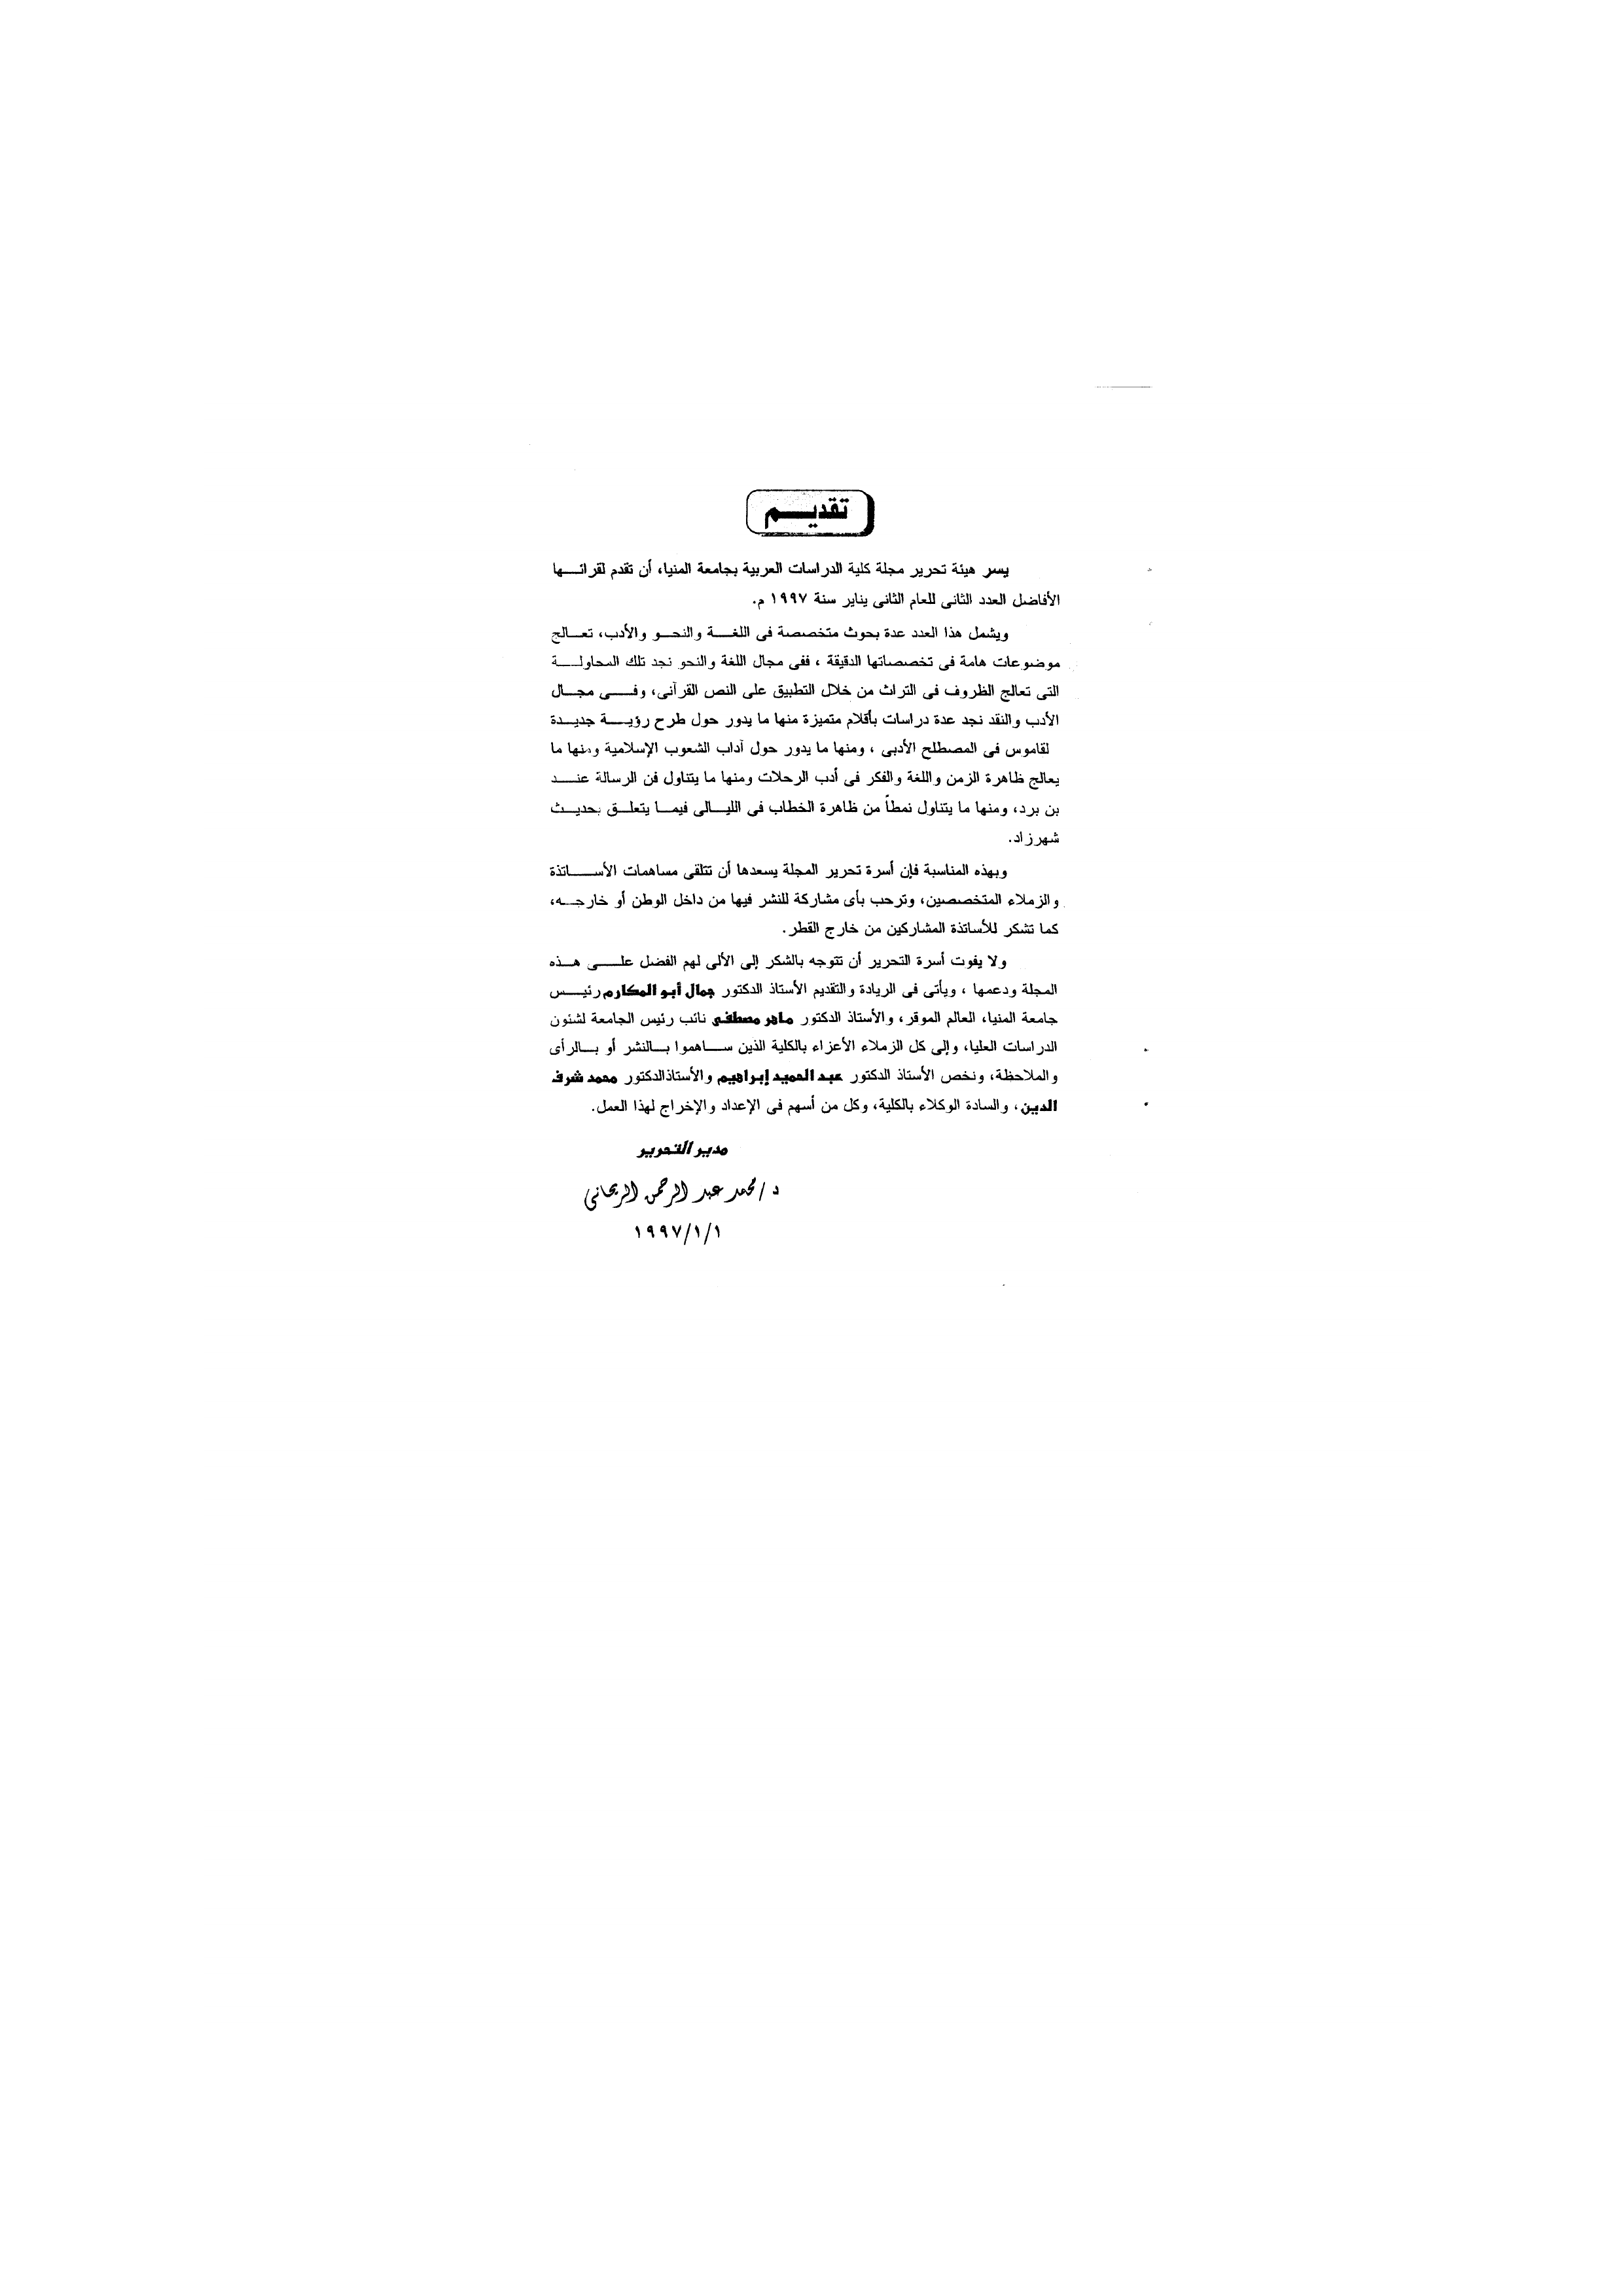 تقديم
يسر هيئة تحرير مجلة كلية الدراسات العربية بجامعة المنيا، أن تقدم لقرائها
الأفاضل العدد الثانى للعام الثانى يناير سنة ١٩٩٧ م.
ويشمل هذا العدد عدة بحوث متخصصة فى اللغة والنحو والأدب، تعالج
موضوعات هامة فى تخصصاتها الدقيقة ، ففى مجال اللغة والنحو نجد تلك المحاولة
التى تعالج الظروف فى التراث من خلال التطبيق على النص القرآنى، وفى مجال
الأدب والنقد نجد عدة دراسات بأقلام متميزة منها ما يدور حول طرح رؤية جديدة
لقاموس فى المصطلح الأدبى ، ومنها ما يدور حول آداب الشعوب الإسلامية ومنها ما
يعالج ظاهرة الزمن واللغة والفكر فى أدب الرحلات ومنها ما يتناول فن الرسالة عند
بن برد، ومنها ما يتناول نمطاً من ظاهرة الخطاب فى الليالى فيما يتعلق بحديث
شهرزاد.
وبهذه المناسبة فإن أسرة تحرير المجلة يسعدها أن تتلقى مساهمات الأساتذة
والزملاء المتخصصين، وترحب بأى مشاركة للنشر فيها من داخل الوطن أو خارجه،
كما تشكر للأساتذة المشاركين من خارج القطر.
ولا يفوت أسرة التحرير أن تتوجه بالشكر إلى الألى لهم الفضل على هذه
المجلة ودعمها ، ويأتى فى الريادة والتقديم الأستاذ الدكتور جمال أبو المكارم رئيس
جامعة المنيا، العالم الموقر، والأستاذ الدكتور ماهر مصطفى نائب رئيس الجامعة لشئون
الدراسات العليا، وإلى كل الزملاء الأعزاء بالكلية الذين ساهموا بالنشر أو بالرأى
والملاحظة، ونخص الأستاذ الدكتور عبد الحميد إبراهيم والأستاذالدكتور محمد شرف
الدين، والسادة الوكلاء بالكلية، وكل من أسهم فى الإعداد والإخراج لهذا العمل.
مدير التحرير
د/محمد عبد الرحمن الريحانى
١٩٩٧/١/١